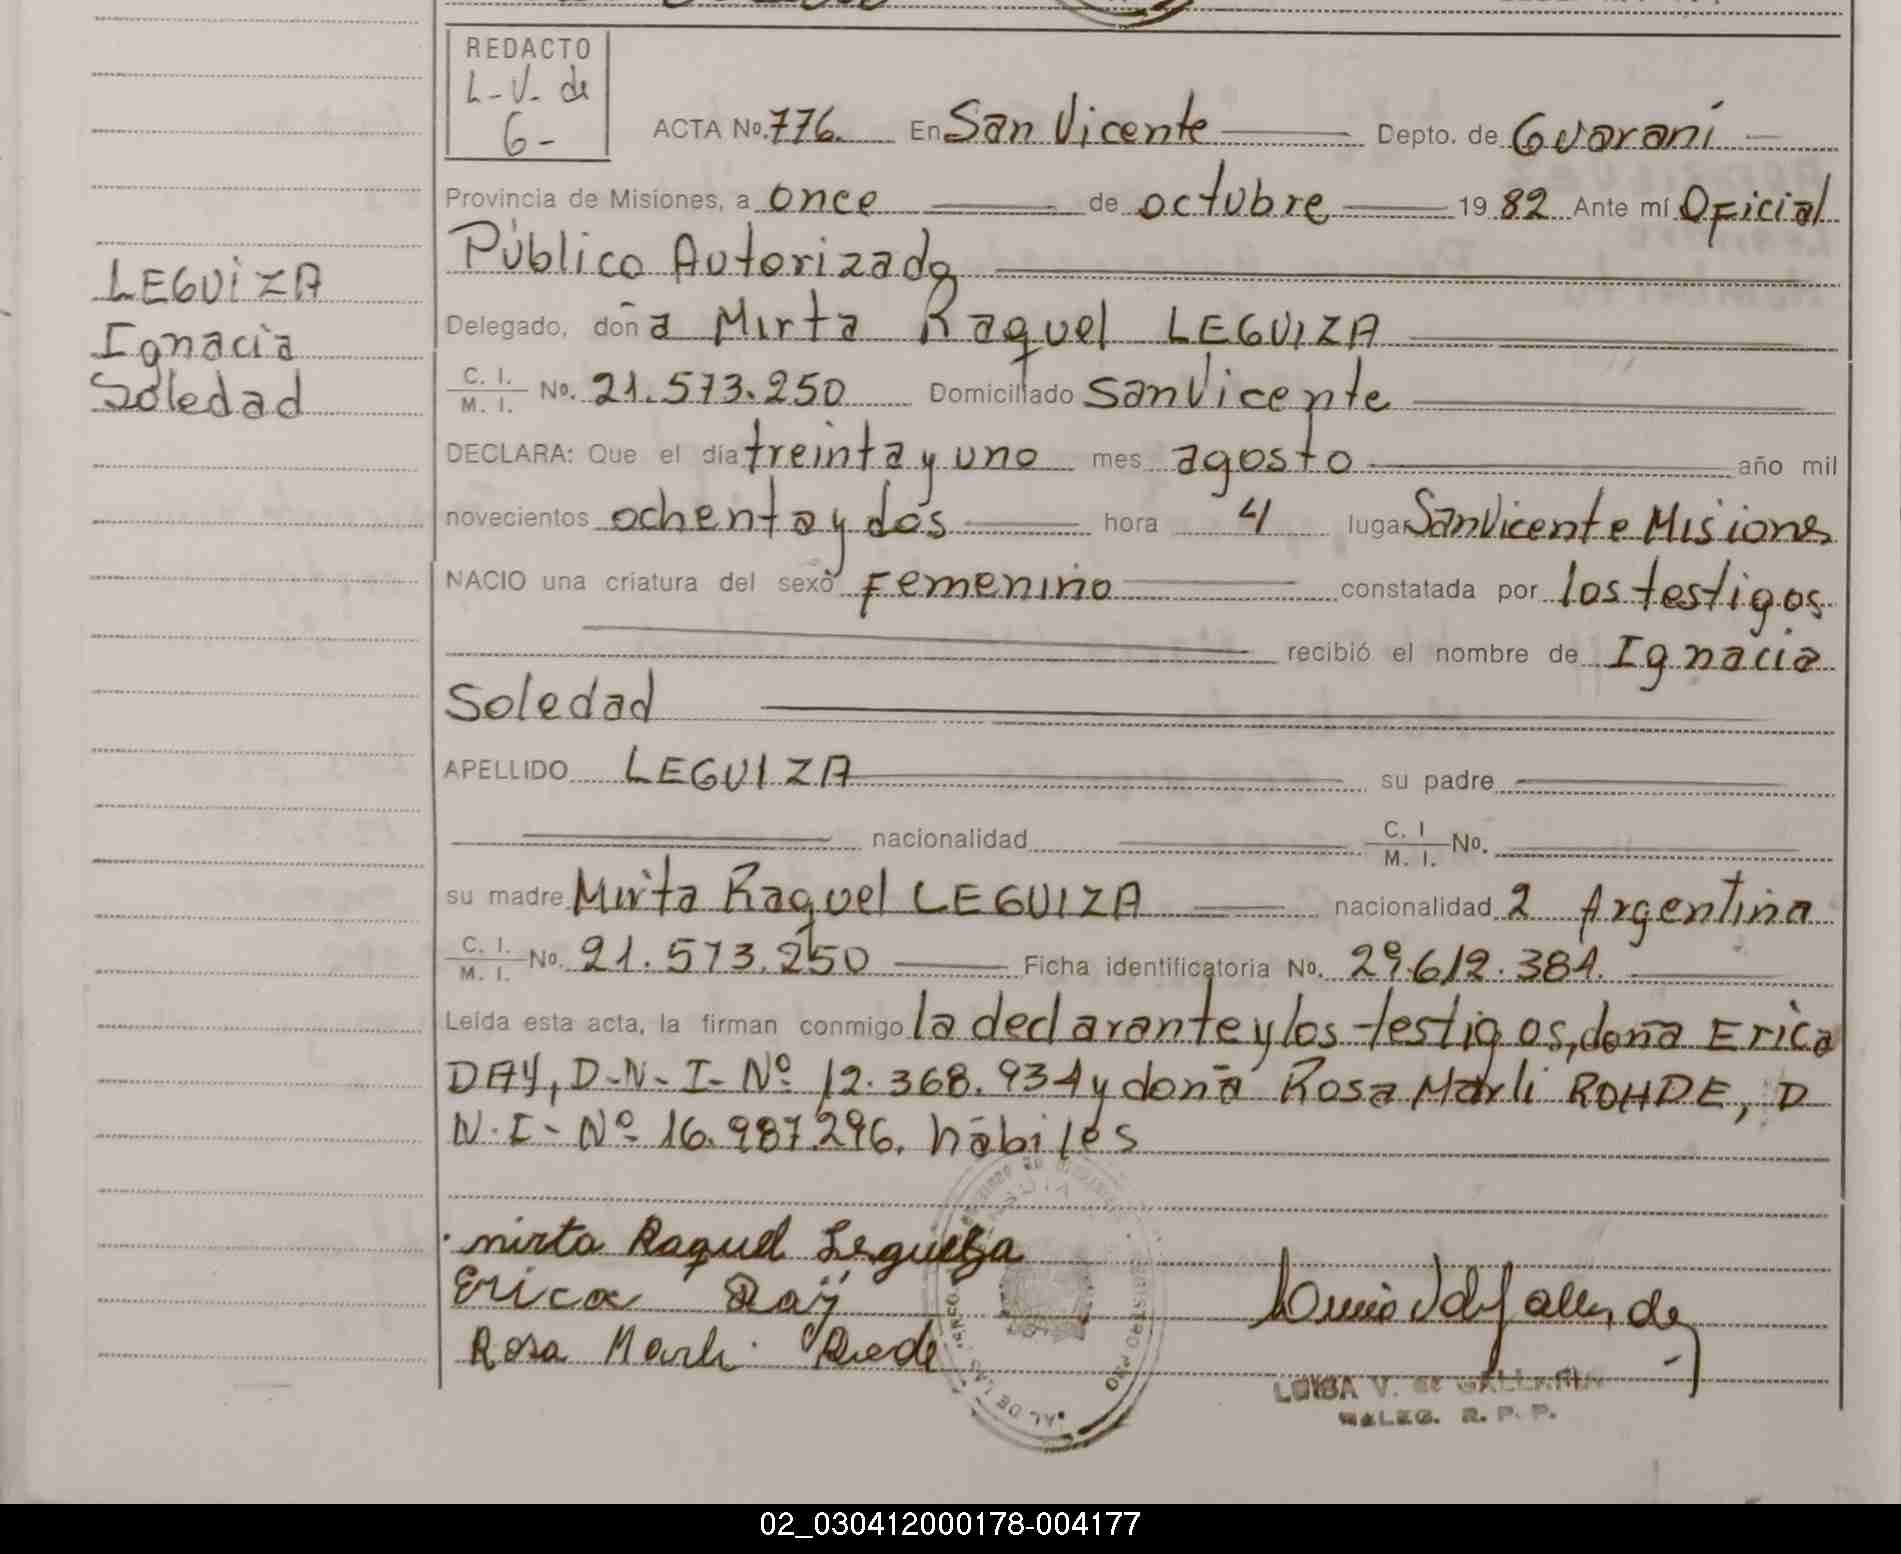 REDACTO
L-V. de
G-
ACTA No. 776. En San Vicente Depto. de Guaraní
Provincia de Misiones, a once de octubre 1982 Ante mí Oficial
Público Autorizado
Delegado, doña Mirta Raquel LEGUIZA
C. I. / M. I. No. 21.573.250 Domiciliado San Vicente
DECLARA: Que el día treinta y uno mes agosto año mil
novecientos ochenta y dos hora 4 lugar San Vicente Misiones
NACIO una criatura del sexo femenino constatada por los testigos
recibió el nombre de Ignacia
Soledad
APELLIDO LEGUIZA su padre
nacionalidad C. I / M. I. No.
su madre Mirta Raquel LEGUIZA nacionalidad 2 Argentina
C. I. / M. I. No. 21.573.250 Ficha identificatoria No. 29.612.384.
Leída esta acta, la firman conmigo la declarante y los testigos, doña Erica
DAY, D-N-I- Nº 12.368.934 y doña Rosa Marli ROHDE, D
N.I- Nº 16.987.296. hábiles
LEGUIZA
Ignacia
Soledad
mirta Raquel Leguiza
Erica Day
Rosa Marli Rhode
LUISA V. de
R. P. P.
02_030412000178-004177